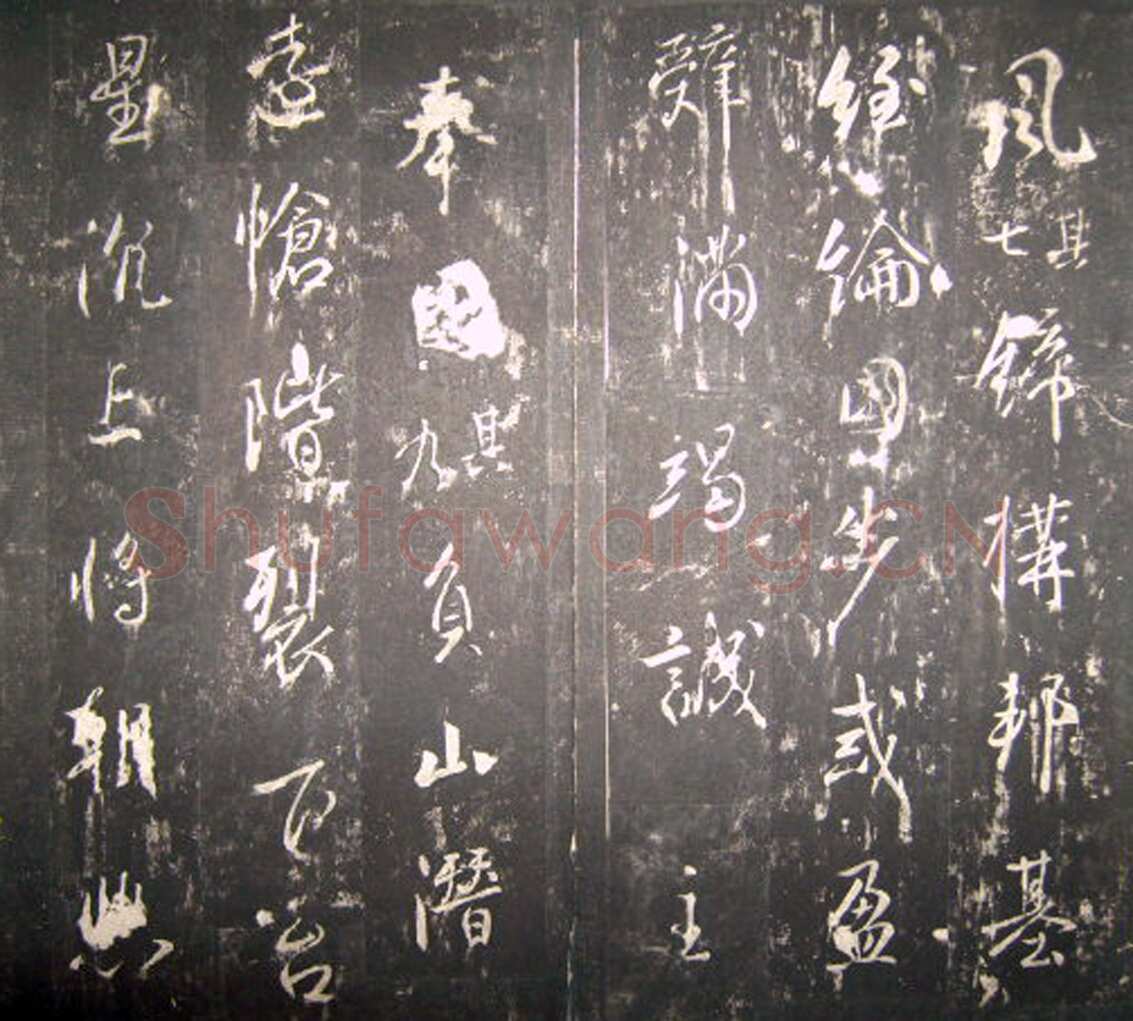 風其七締構邦基
經綸國步或盈
辭滿竭誠主
奉國其九負山潛
遠愴階裂下台
星沉上將朝典
Shufawang.CN